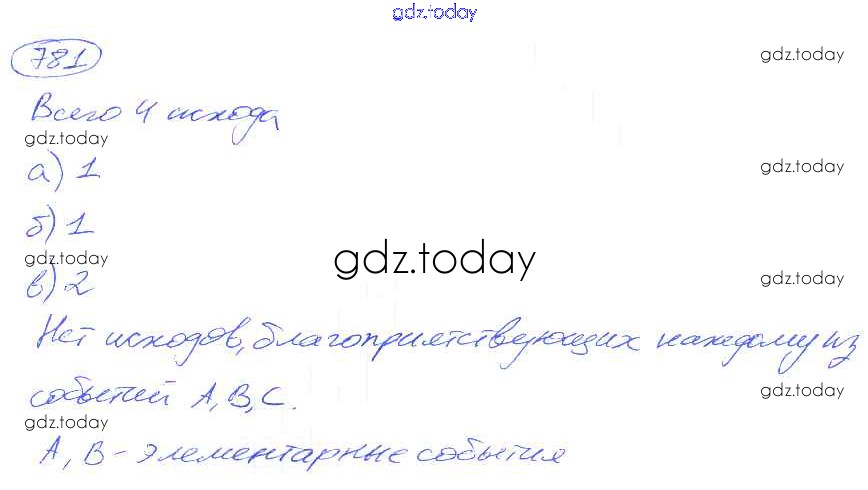 gdz.today
781
gdz.today
Всего 4 исхода
gdz.today
а) 1
gdz.today
б) 1
gdz.today
gdz.today
в) 2
gdz.today
Нет исходов, благоприятствующих каждому из
событий А, В, С.
gdz.today
gdz.today
А, В - элементарные события